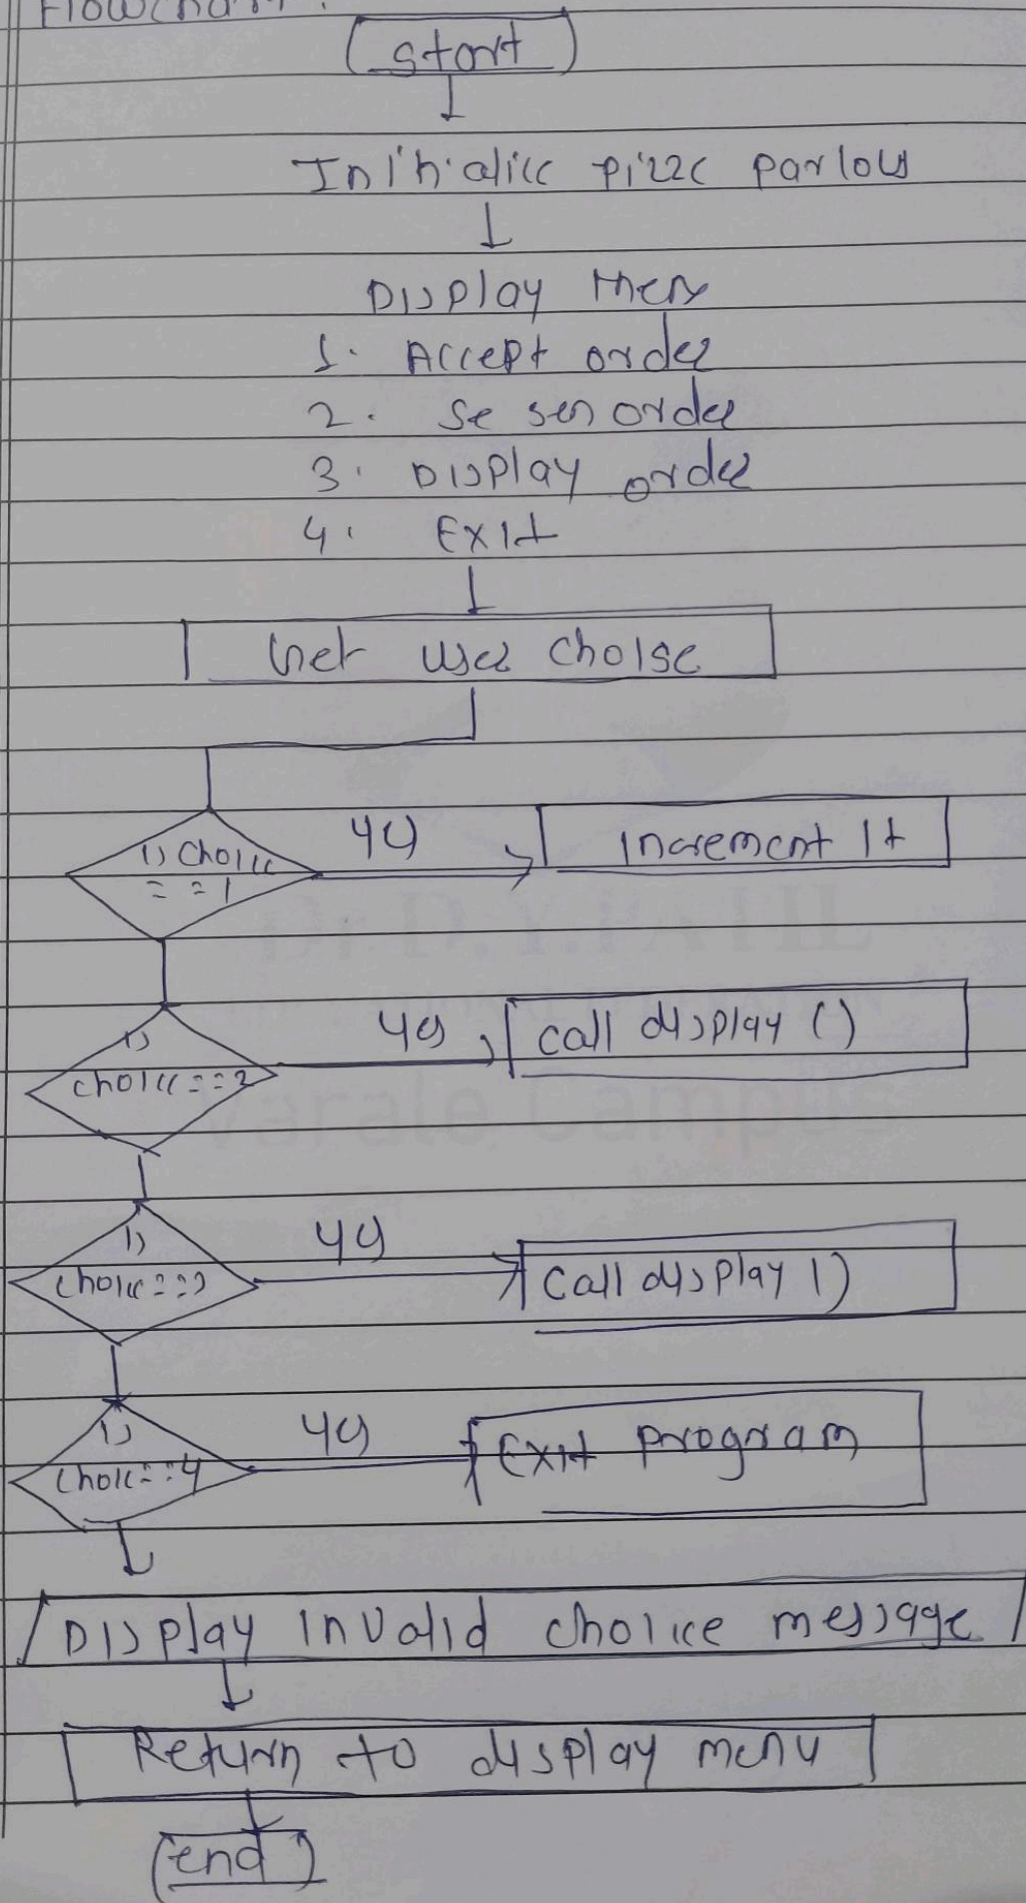 Flowchart :
(start)
Initialice pizzc parlour
Display menu
1. Accept order
2. Se serv order
3. Display order
4. Exit
Get user choise
is choice
= = 1
yes
Increment It
is
choice==2
yes
call display ()
is
choice==3
yes
call display ()
is
choic==4
yes
Exit program
Display invalid choice message
Return to display menu
(end)
Dr D.Y.PATIL
Varale Campus